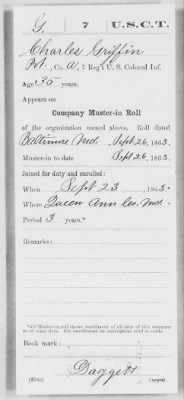 G 7 U.S.C.T.
Charles Griffin
Pvt., Co. A, 7 Reg't U. S. Colored Inf.
Age 35 years.
Appears on
Company Muster-in Roll
of the organization named above. Roll dated
Baltimore Md. Sept 26, 1863.
Muster-in to date Sept 26, 1863.
Joined for duty and enrolled:
When Sept 23, 1863.*
Where Queen Ann Co. Md.
Period 3 years.*
Remarks:
*At Muster-in roll shows enrollment of all men of this company
as of same date. See enrollment on subsequent card or cards.
Book mark:
Daggett
Copyist.